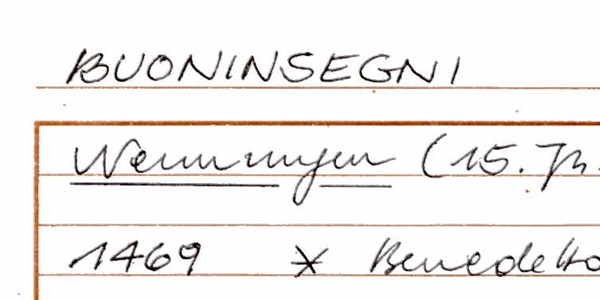 BUONINSEGNI
Nennungen (15. Jh.
1469 * Benedetto